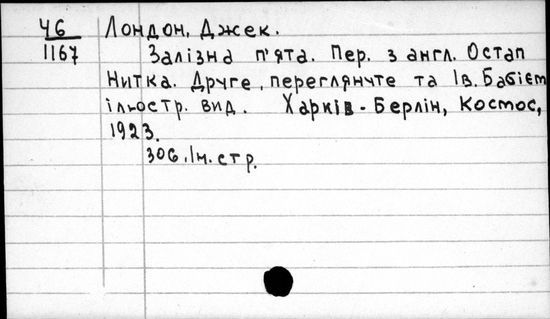 46 Лондон, Джек.
1167 Залізна п'ята. Пер. з англ. Остап
Нитка. Друге, переглянуте та Ів. Бабієм
ілюстр. вид. Харків - Берлін, Космос,
1923.
306. Ін. стр.